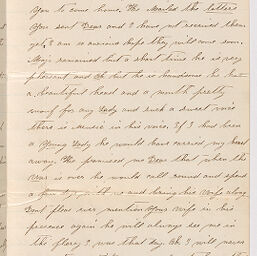 you to come home. He mailed the letters
you sent Dear and I have not received them
yet. I am so anxious hope they will come soon.
Maj. remained but a short time he is very
pleasant and Oh but he is handsome he has
a beautiful head and a mouth pretty
enough for any Lady and such a sweet voice
there is music in his voice. If I had been
a Young Lady he would have carried my heart
away. He promised me Dear that when the
War is over he would call round and spend
a few days with us and bring his Wife along
Dont please ever mention your Wife in his
presence again he will always see me in
like flurry I was that day. Oh I will never